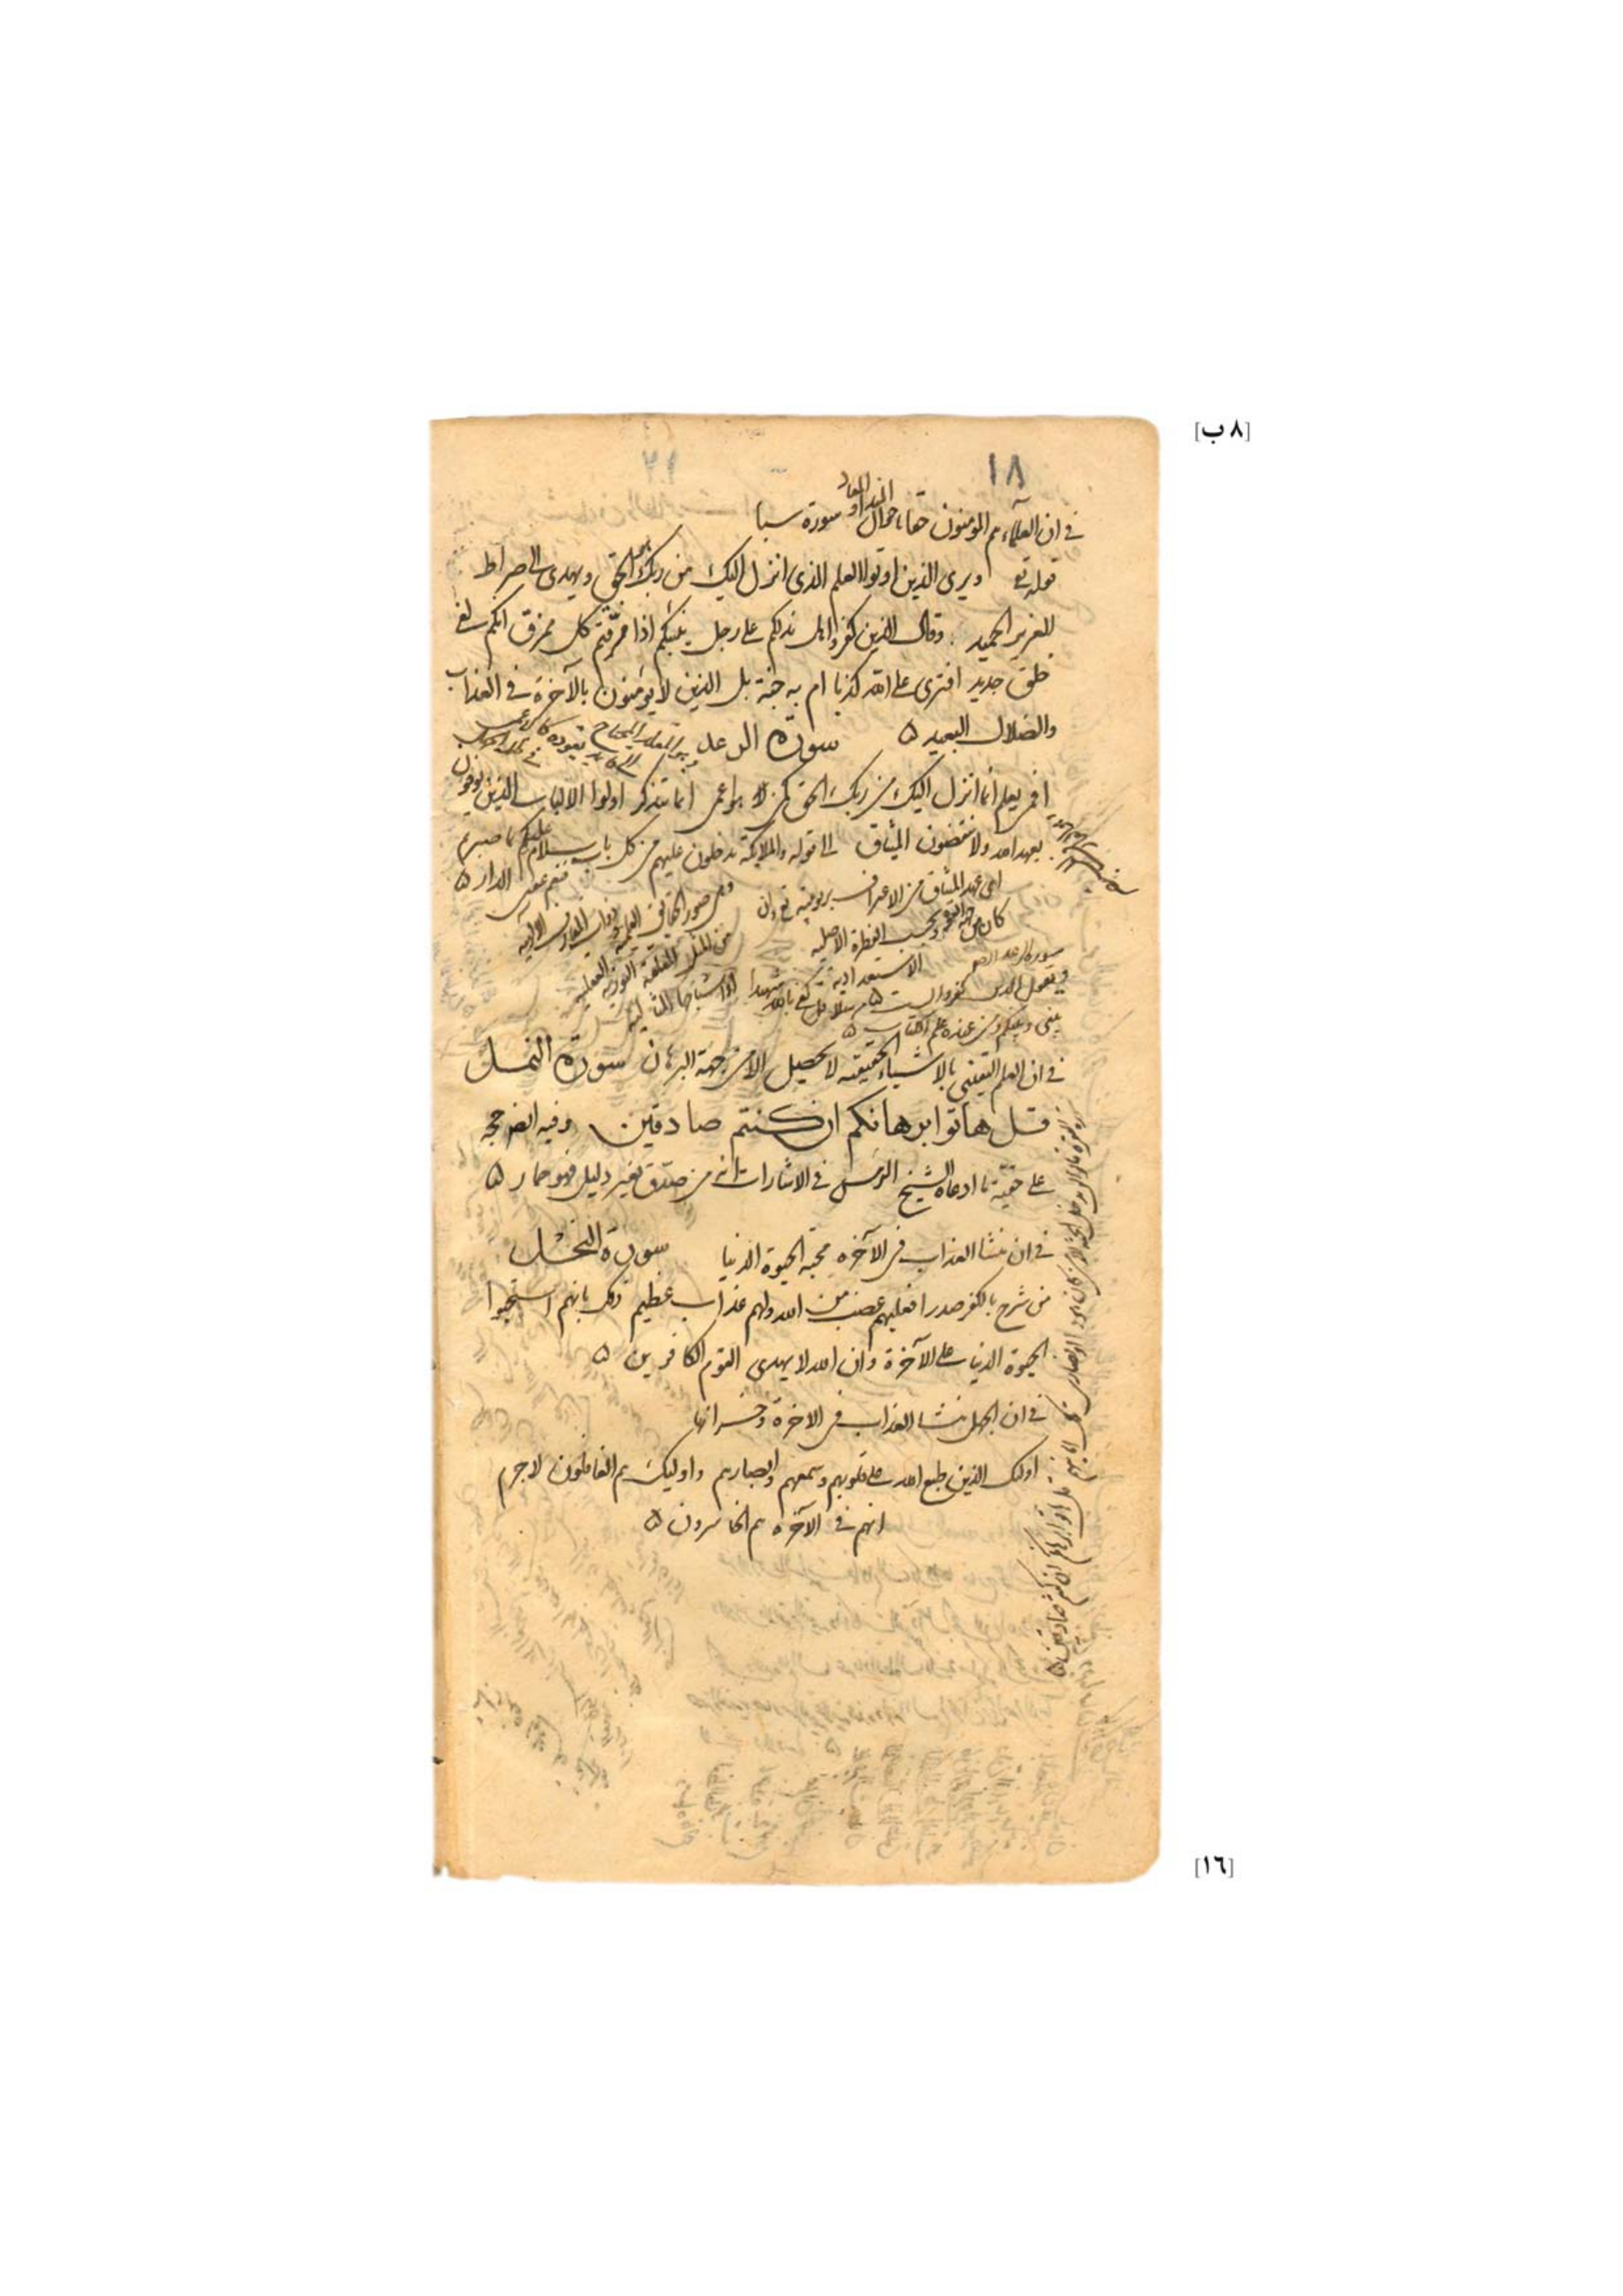 [٨ ب]
١٨
في ان العلماء هم المؤمنون حقا باحوال المبداو المعاد سورة سبا
قوله تع ويرى الذين اوتوا العلم الذى انزل اليك من ربك هو الحق ويهدى الى صراط
العزيز الحميد وقال الذين كفروا هل ندلكم على رجل ينبئكم اذا مزقتم كل ممزق انكم لفى
خلق جديد افترى على الله كذبا ام به جنة بل الذين لا يؤمنون بالآخرة فى العذاب
والضلال البعيد ۵ سورة الرعد
افمن يعلم انما انزل اليك من ربك الحق كمن هو اعمى انما يتذكر اولوا الالباب الذين يوفون
بعهد الله ولا ينقضون الميثاق الى قوله والملايكة يدخلون عليهم من كل باب سلام عليكم بما صبرتم
فنعم عقبى الدار ۵
اى عهد الميثاق من الاعتراف بربوبيته تع وان
كان بحسب الفطرة الاصلية
الاستعدادية
ويقول الذين كفروا لست مرسلا قل كفى بالله شهيدا
بينى وبينكم ومن عنده علم الكتاب ۵
في ان العلم اليقينى بالاشياء الحقيقيه لا يحصل الا من جهة البرهان سورة النمل
قل هاتوا برهانكم ان كنتم صادقين وفيه ايض حجه
على حقية ما ادعاه الشيخ الرئيس في الاشارات انه من صدق بغير دليل فهو حمار ۵
في ان منشا العذاب فى الآخره محبة الحيوة الدنيا سورة النحل
من شرح بالكفر صدرا فعليهم غضب من الله ولهم عذاب عظيم ذلك بانهم استحبوا
الحيوة الدنيا على الآخرة وان الله لا يهدى القوم الكافرين ۵
في ان الجهل منشا العذاب فى الاخرة وخسرانها
اولئك الذين طبع الله على قلوبهم وسمعهم وابصارهم واوليك هم الغافلون لا جرم
انهم فى الآخره هم الخاسرون ۵
البقرة وقالوا لن يدخل الجنة الا من كان هودا او نصارى تلك امانيهم قل هاتوا برهانكم ان كنتم صادقين ۵
[١٦]